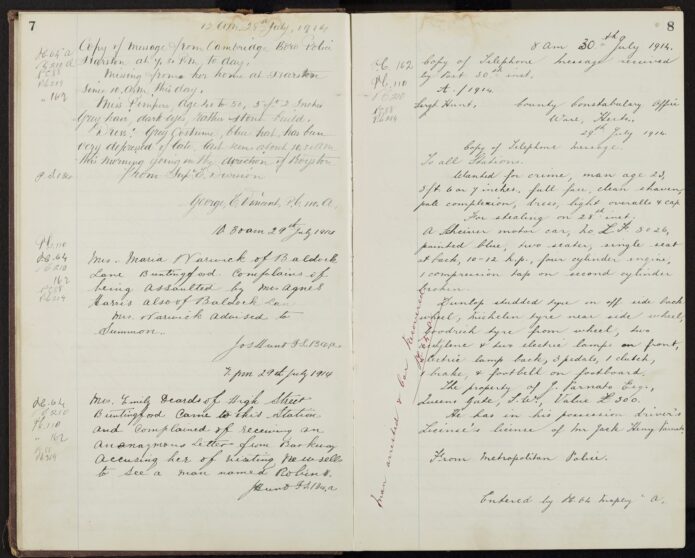 7
12 am 28th July, 1914
Copy of Message from Cambridge Boro Police
Harston at 7. 20 P.M, to day.
Missing from her home at Harston
since 10.0 am, this day.
Miss Pamphre, age 40 to 50, 5 ft 2 inches
Grey hair, dark eyes, rather stout build.
Dress: Grey Costume, blue hat, has been
very depressed of late, last seen about 10.30 am
this morning going in the direction of Royston
From Supt E Division
George E Vincent, P.C. 110 A.
10.30 am 29th July 1914
Mrs. Maria Warwick of Baldock
Lane Buntingford. Complains of
being assaulted by Mrs Agnes
Harris also of Baldock Lane
Mrs. Warwick advised to
Summon.
Jos Hunt
7 pm 29th July 1914
Mrs. Emily Deards of High Street
Buntingford came to this Station
and complained of receiving an
Ananagmous Letter from Barkway
accusing her of visiting Newsells
to see a man named Robins.
J Hunt
8
8 am 30th July 1914.
Copy of Telephone message received
by Post 30th inst.
A. / 1914.
Sergt Hunt. County Constabulary Office
Ware, Herts.
29th July 1914
Copy of Telephone message.
To all Stations.
Wanted for crime, man age 23,
5 ft 6 or 7 inches, full face, clean shaven,
pale complexion, dress, light overalls & cap.
For stealing on 28th inst.
A motor car, no L.F. 3026,
painted blue, two seater, single seat
at back, 10-12 h.p., four cylinder engine,
1 compression tap on second cylinder
broken.
Dunlop studded tyre on off side back
wheel, michelin tyre near side wheel,
Goodrich tyre front wheel, two
acetylene & two electric lamps on front,
electric lamp back, 3 pedals, 1 clutch,
1 brake, & footbell on footboard.
The property of J. Varnato Esqr,
Queens Gate, S.W., Value £300.
He has in his possession driver's
Licence's licence of Mr Jack Henry Varnato
From Metropolitan Police.
Entered by P.C. 64 A.
Man arrested & Car recovered